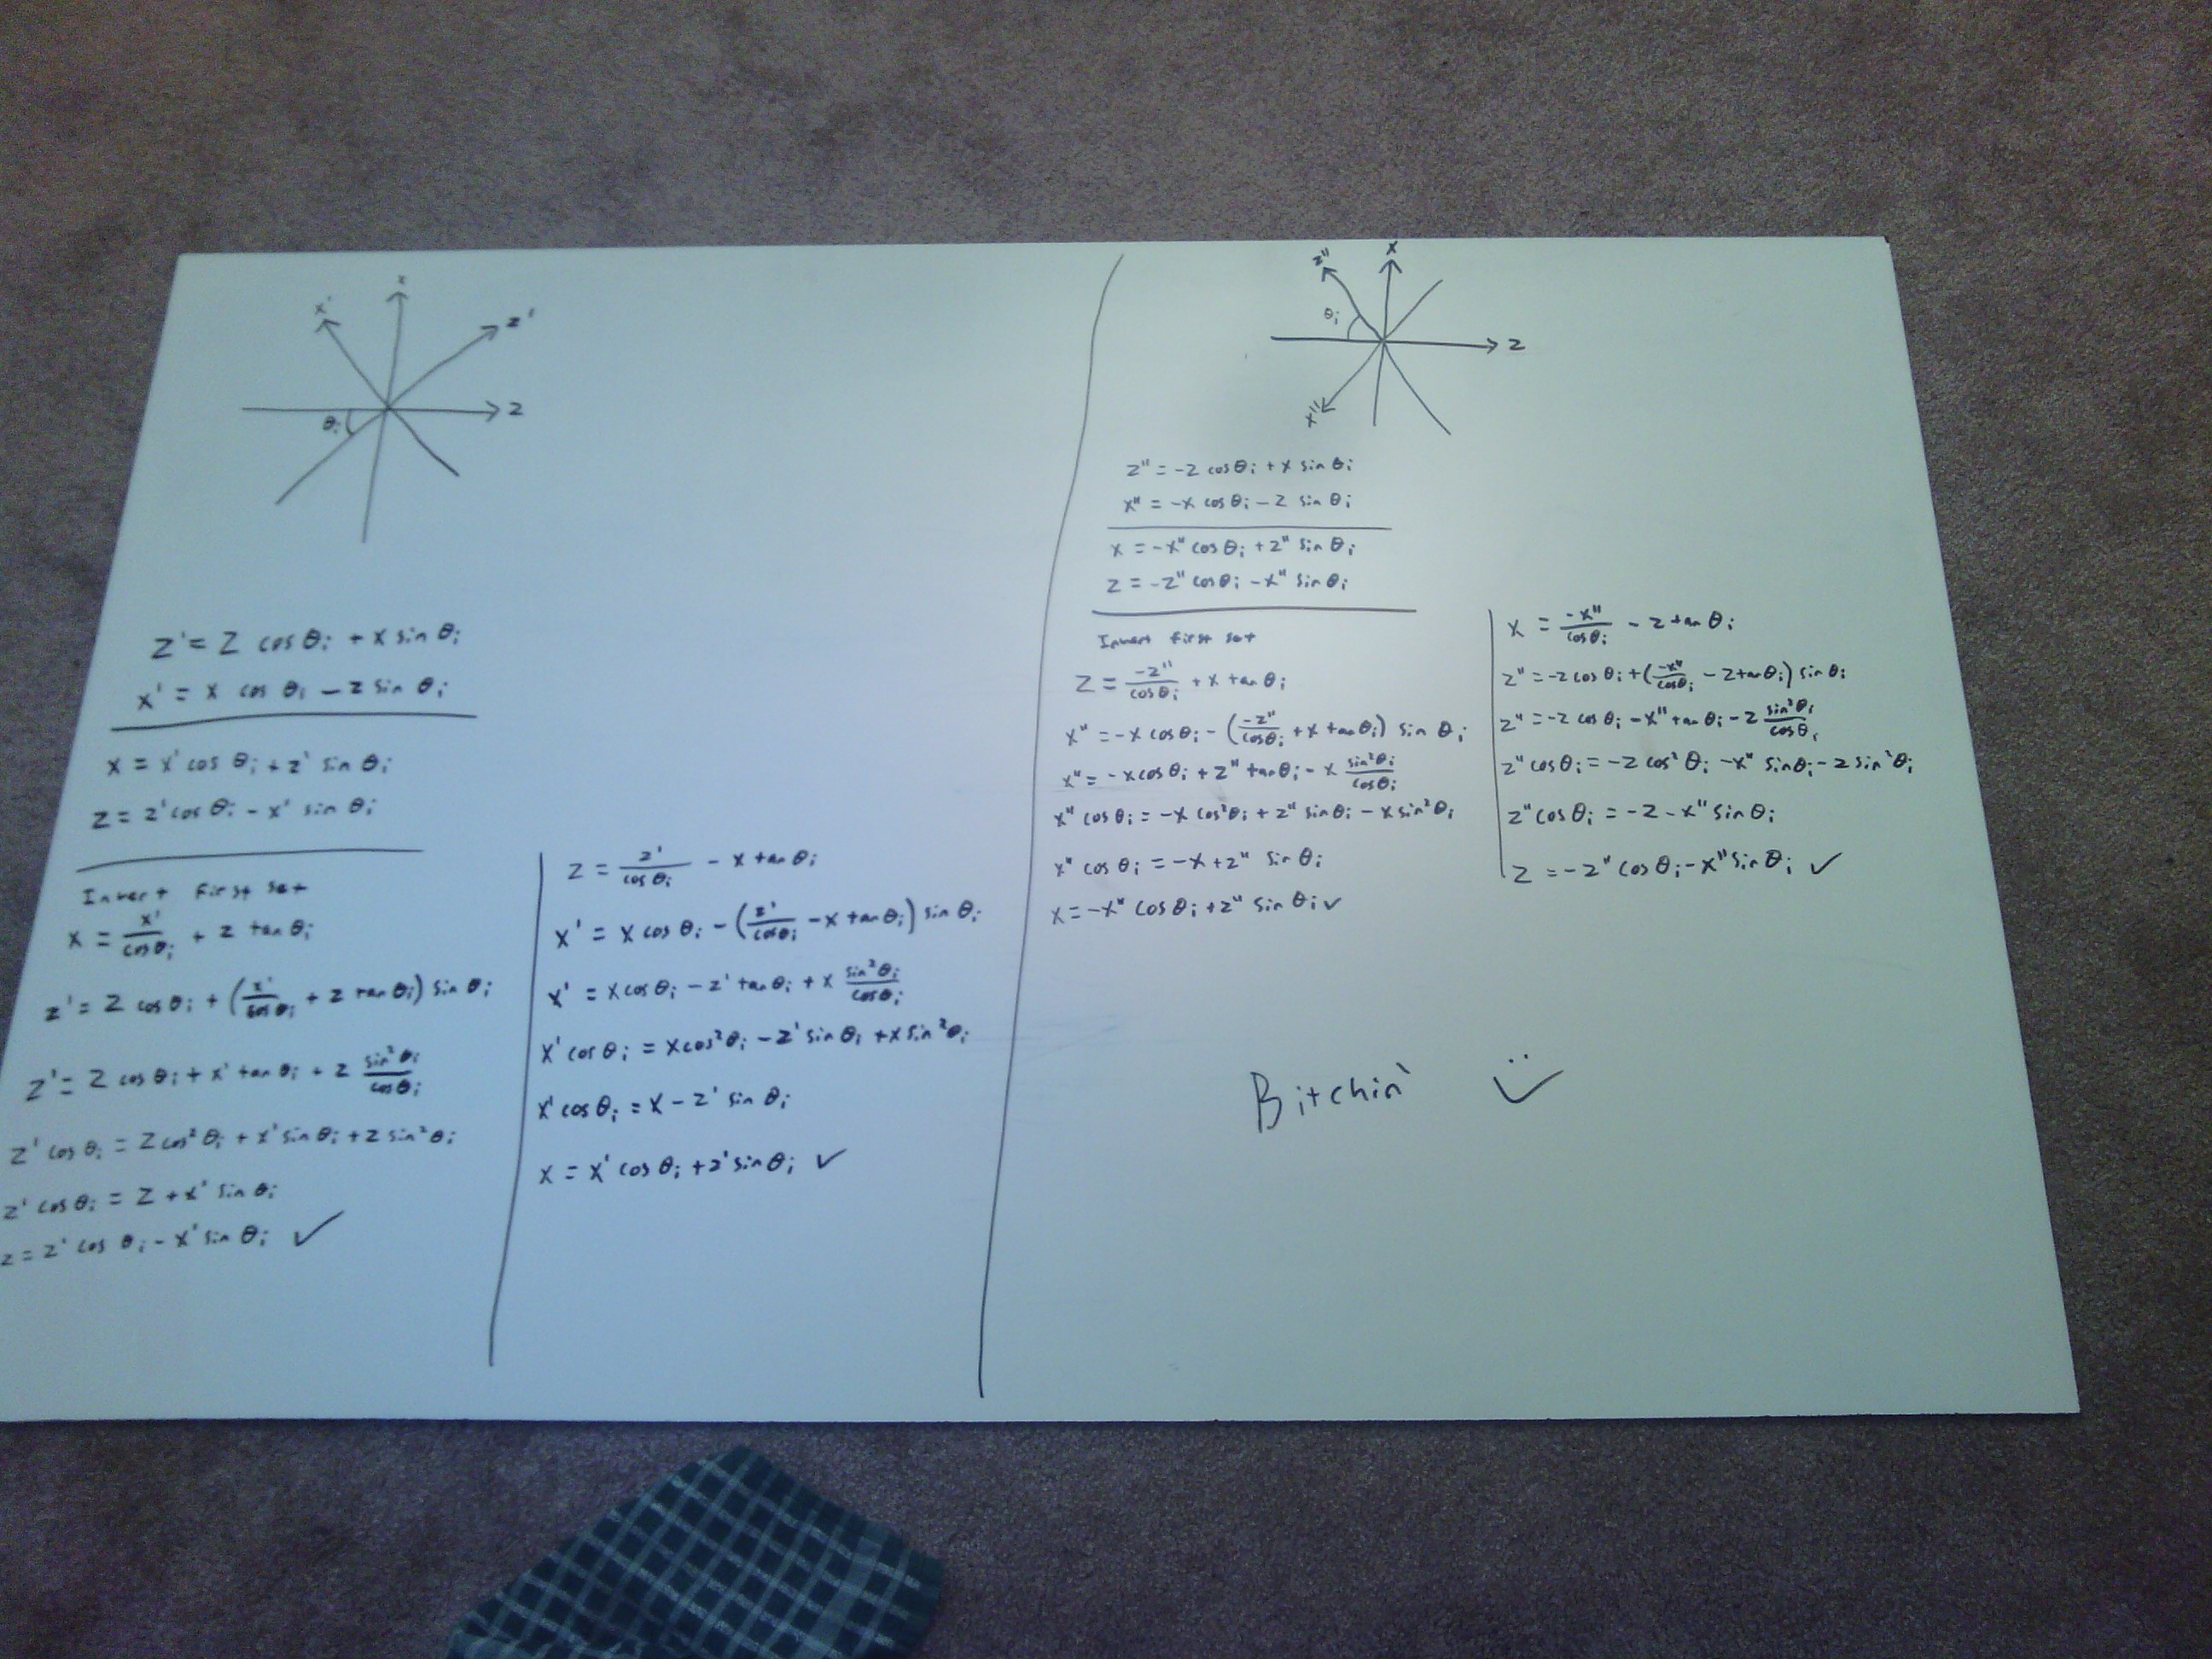 x
x'
z'
z
θᵢ
z' = z cos θᵢ + x sin θᵢ
x' = x cos θᵢ - z sin θᵢ
x = x' cos θᵢ + z' sin θᵢ
z = z' cos θᵢ - x' sin θᵢ
Invert first set
x = x'/cos θᵢ + z tan θᵢ
z' = z cos θᵢ + (x'/cos θᵢ + z tan θᵢ) sin θᵢ
z' = z cos θᵢ + x' tan θᵢ + z sin²θᵢ/cos θᵢ
z' cos θᵢ = z cos²θᵢ + x' sin θᵢ + z sin²θᵢ
z' cos θᵢ = z + x' sin θᵢ
z = z' cos θᵢ - x' sin θᵢ ✓
z = z'/cos θᵢ - x tan θᵢ
x' = x cos θᵢ - (z'/cos θᵢ - x tan θᵢ) sin θᵢ
x' = x cos θᵢ - z' tan θᵢ + x sin²θᵢ/cos θᵢ
x' cos θᵢ = x cos²θᵢ - z' sin θᵢ + x sin²θᵢ
x' cos θᵢ = x - z' sin θᵢ
x = x' cos θᵢ + z' sin θᵢ ✓
z''
x
θᵢ
z
x''
z'' = -z cos θᵢ + x sin θᵢ
x'' = -x cos θᵢ - z sin θᵢ
x = -x'' cos θᵢ + z'' sin θᵢ
z = -z'' cos θᵢ - x'' sin θᵢ
Invert first set
z = -z''/cos θᵢ + x tan θᵢ
x'' = -x cos θᵢ - (-z''/cos θᵢ + x tan θᵢ) sin θᵢ
x'' = -x cos θᵢ + z'' tan θᵢ - x sin²θᵢ/cos θᵢ
x'' cos θᵢ = -x cos²θᵢ + z'' sin θᵢ - x sin²θᵢ
x'' cos θᵢ = -x + z'' sin θᵢ
x = -x'' cos θᵢ + z'' sin θᵢ ✓
x = -x''/cos θᵢ - z tan θᵢ
z'' = -z cos θᵢ + (-x''/cos θᵢ - z tan θᵢ) sin θᵢ
z'' = -z cos θᵢ - x'' tan θᵢ - z sin²θᵢ/cos θᵢ
z'' cos θᵢ = -z cos²θᵢ - x'' sin θᵢ - z sin²θᵢ
z'' cos θᵢ = -z - x'' sin θᵢ
z = -z'' cos θᵢ - x'' sin θᵢ ✓
Bitchin'